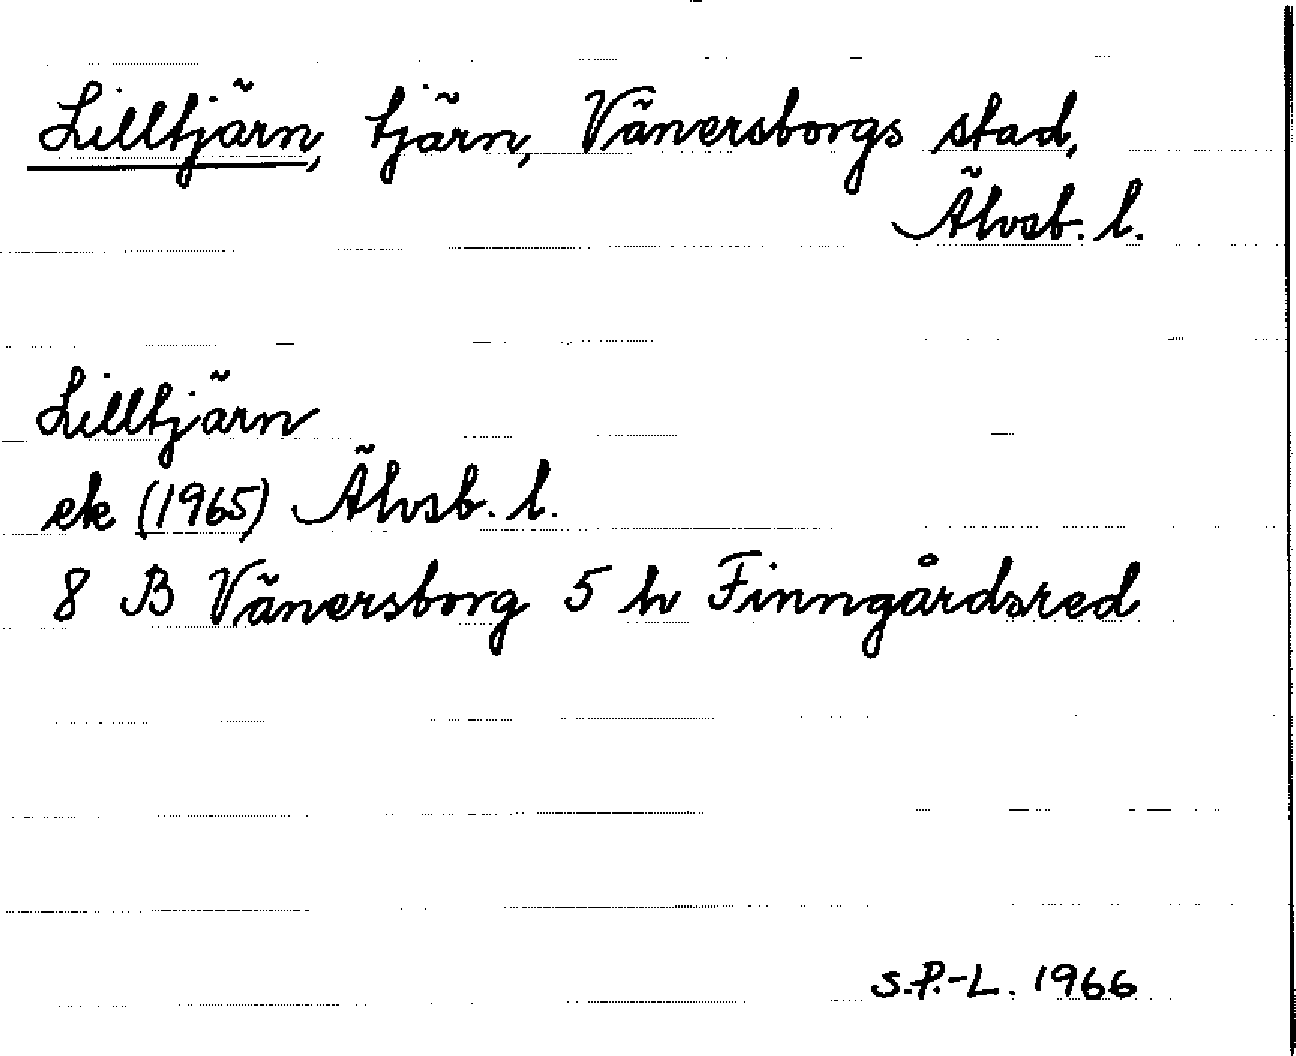 Lilltjärn, tjärn, Vänersborgs stad,
Älvsb. l.
Lilltjärn
ek (1965) Älvsb. l.
8 B Vänersborg 5 h Finngårdsred
S.P.-L. 1966